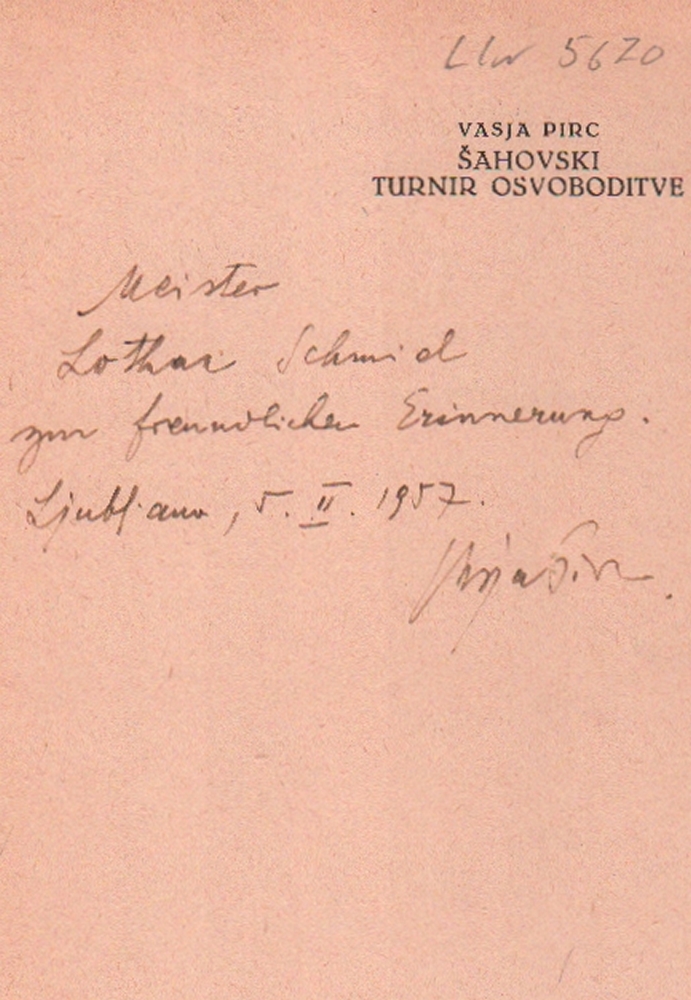 LIW 5620
VASJA PIRC
ŠAHOVSKI
TURNIR OSVOBODITVE
Meister
Lothar Schmid
zur freundlichen Erinnerung.
Ljubljana, 5. II. 1957.
Vasja Pirc.